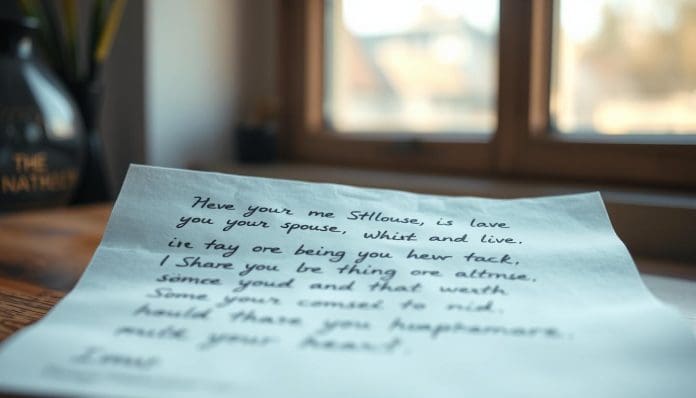 THE
NATH
Heve your me Sthlouse, is lave
you your spouse, whist and live.
in tay ore being you hewr tack,
I Share you bre thing ore altmse,
sömce youd and that werth
Some your comset to nid.
hould thare you huaphamare.
your heart.